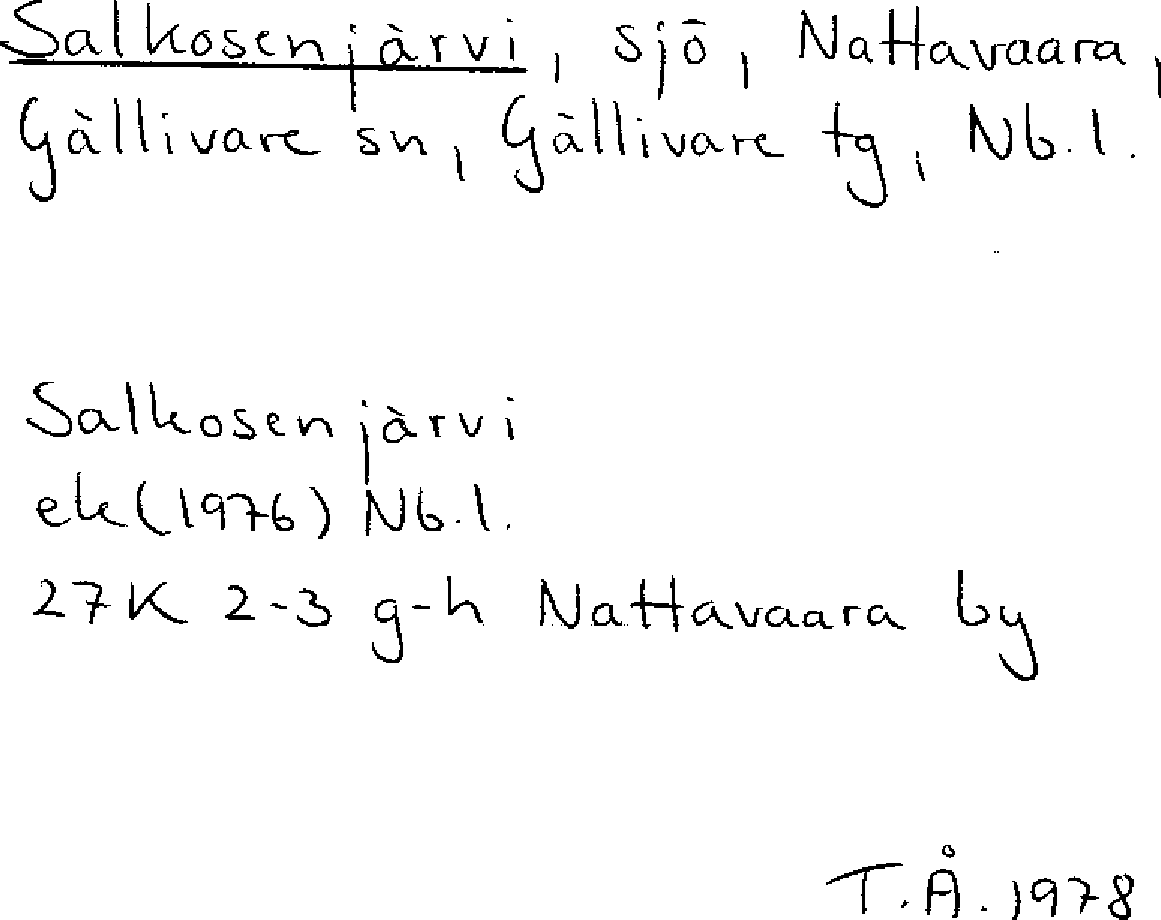 Salkosenjärvi, sjö, Nattavaara,
Gällivare sn, Gällivare tg, Nb.l.
Salkosenjärvi
ek(1976) Nb.l.
27K 2-3 g-h Nattavaara by
T.Å.1978